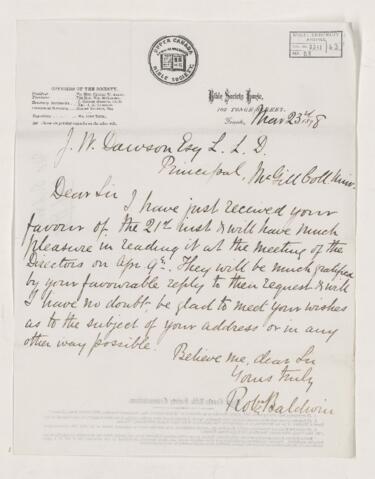 UPPER CANADA
BIBLE SOCIETY
OFFICERS OF THE SOCIETY.
Bible Society House,
102 YONGE STREET,
Toronto, Mar 23rd 1878
J. W. Dawson Esq L. L. D.
Principal, McGill Coll Univ.
Dear Sir
I have just received your
favour of the 21st inst & will have much
pleasure in reading it at the meeting of the
Directors on Apr 9th. They will be much gratified
by your favourable reply to their request & will
I have no doubt, be glad to meet your wishes
as to the subject of your address or in any
other way possible.
Believe me, dear Sir
Yours truly
Robt Baldwin